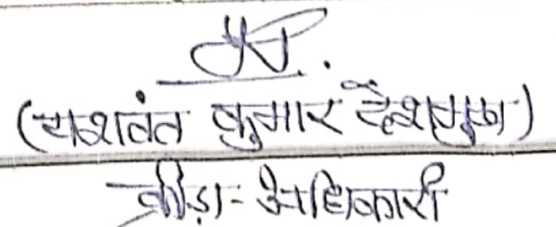 (यशवंत कुमार देशमुख)
क्रीड़ा- अधिकारी